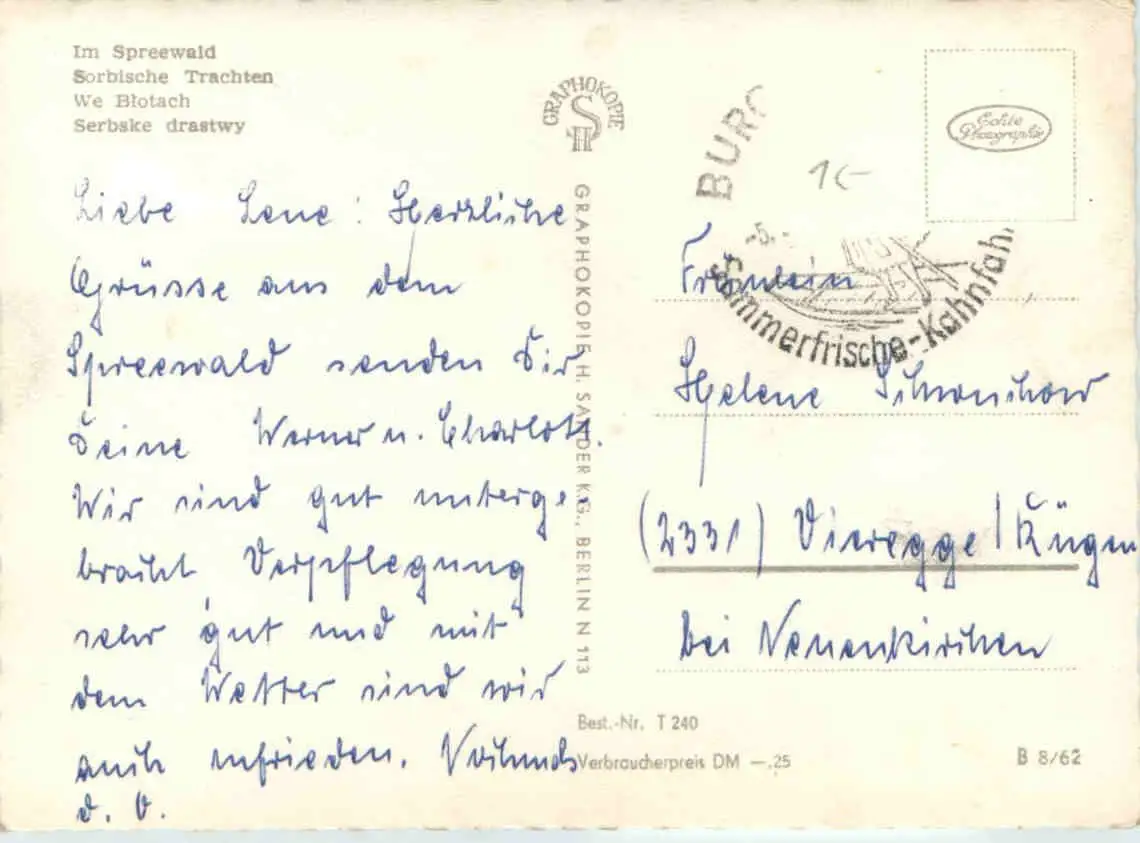 Im Spreewald
Sorbische Trachten
We Błotach
Serbske drastwy
Liebe Lene! Herzliche
Grüsse aus dem
Spreewald senden Dir
Deine Werner u. Charlott.
Wir sind gut unterge-
bracht, Verpflegung
sehr gut und mit
dem Wetter sind wir
auch zufrieden.
d. O.
GRAPHOKOPIE
SH
GRAPHOKOPIE H. SANDER K.G., BERLIN N 113
BURG
1(-
-5.-
Sommerfrische-Kahnfah
Echte
Photographie
Fräulein
Helene
(2331) Vieregge / Rügen
bei Neuenkirchen
Best.-Nr. T 240
Verbraucherpreis DM —.25
B 8/62